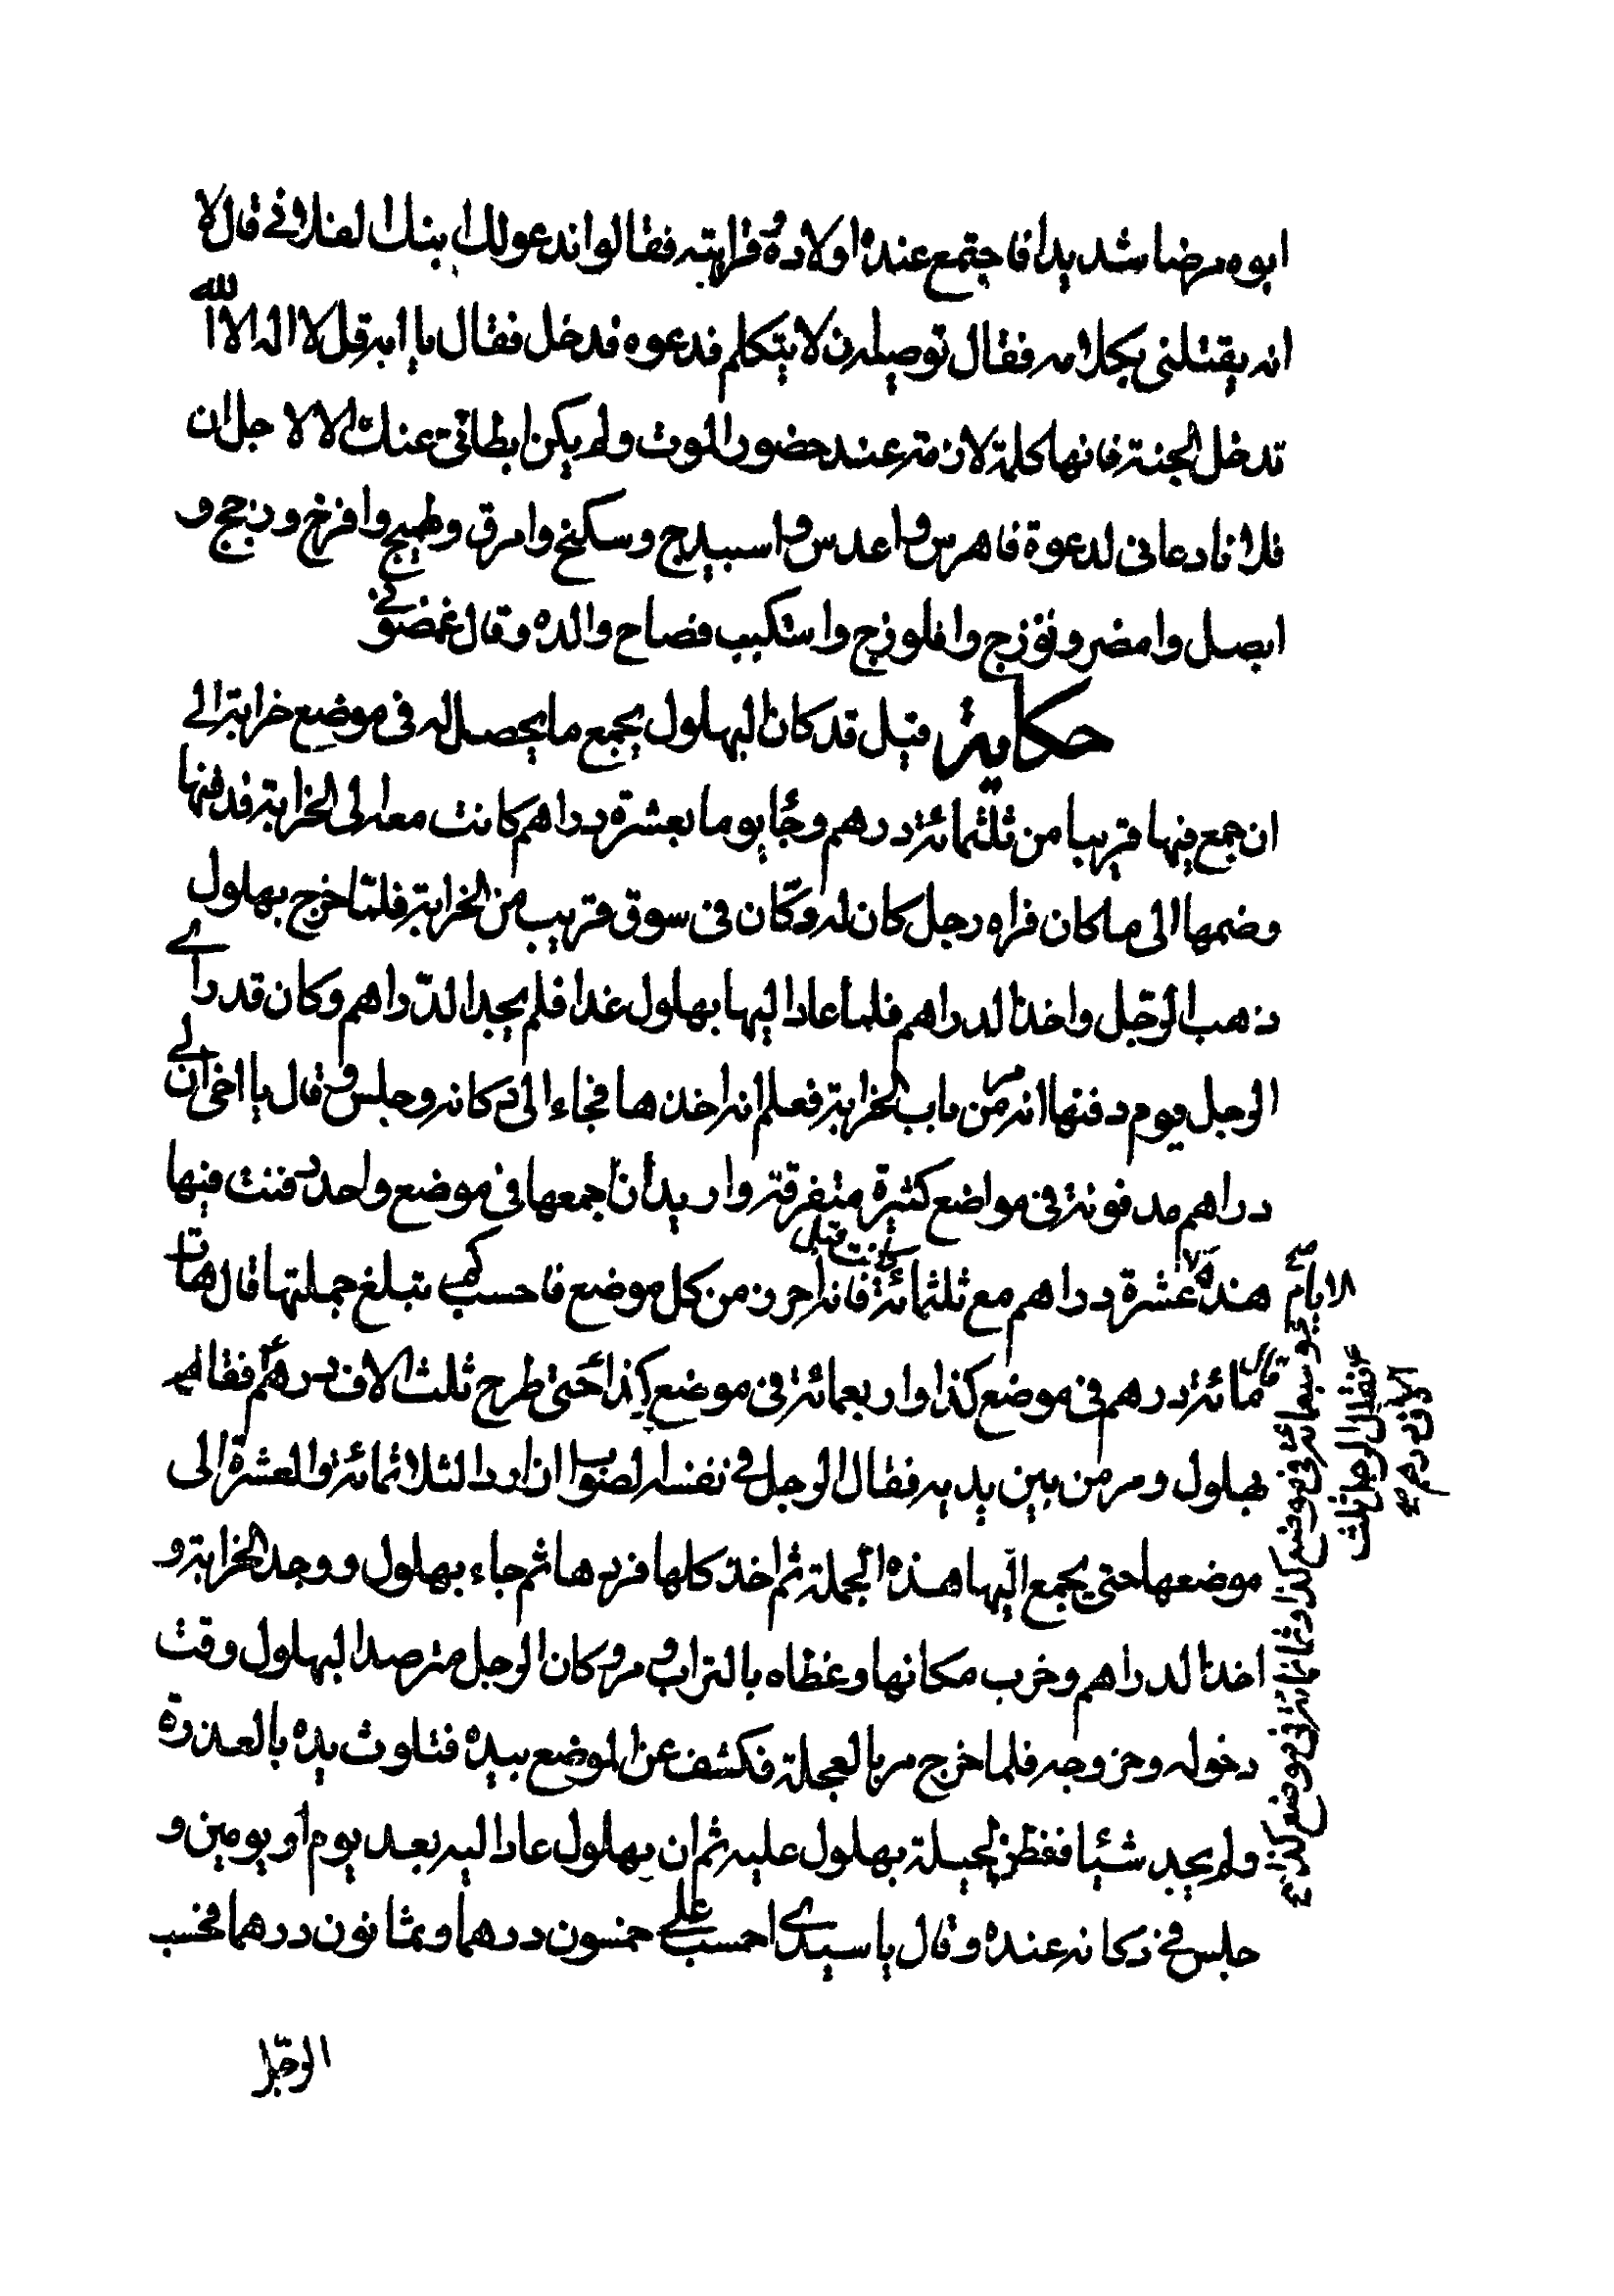 ابوه مرضا شديدا فاجتمع عنده اولاده و قرابته فقالوا ندعو لك ابنك الفلاني قال لا
انه يقتلني بكلامه فقال توصيله ن لا يتكلم فدعوه فدخل فقال يا ابه قل لا اله الا الله
تدخل الجنة فانها كلمة لازمة عند حضور الموت ولم يكن ابطائي عنك الا لاجل ان
فلانا دعاني لدعوة فاهرس و اعدس و اسبيدج وسكنج وامرق وطبيج وافرخ ودجج و
ابصل وامضر ونوزج وافلوزج واستكبب فصاح والده وقال غمضوني
حكاية قيل قد كان البهلول يجمع ما يحصل له في موضع خرابة الى
ان جمع فيها قريبا من ثلثمائة درهم وجاء يوما بعشرة دراهم كانت معه الى الخرابة فدفنها
وضمها الى ما كان فراه رجل كان له دكان في سوق قريب من الخرابة فلما خرج بهلول
ذهب الرجل واخذ الدراهم فلما عاد اليها بهلول غدا فلم يجد الدراهم وكان قد راى
الرجل يوم دفنها انه مر من باب الخرابة فعلم انه اخذها فجاء الى دكانه وجلس و قال يا اخي ان لي
دراهم مدفونة في مواضع كثيرة متفرقة واريد ان اجمعها في موضع واحد دفنت فيها
هذه عشرة دراهم مع ثلثمائة كانت قبل فانه احرز من كل موضع فاحسب كم تبلغ جملتها قال هات
قال مائة درهم في موضع كذا واربعمائة في موضع كذا حتى طرح ثلث الاف درهم فقام
بهلول ومر من بين يديه فقال الرجل في نفسه الصواب ان ارد الثلاثمائة والعشرة الى
موضعها حتى يجمع اليها هذه الجملة ثم اخذ كلها فردها ثم جاء بهلول ووجد الخرابة و
اخذ الدراهم وخرب مكانها وغطاه بالتراب و مر و كان الرجل مترصدا البهلول وقت
دخوله وخروجه فلما خرج مر بالعجلة فكشف عن الموضع بيده فتلوث يده بالعذرة
ولم يجد شيئا ففطن لحيلة بهلول عليه ثم ان بهلول عاد اليه بعد يوم او يومين و
جلس في دكانه عنده وقال يا سيدي احسب علي خمسون درهما وثمانون درهما فحسب
وسبعمائة في موضع كذا وثمانمائة في موضع كذا
فقال الرجل ثلث
الاف درهم
الرجل